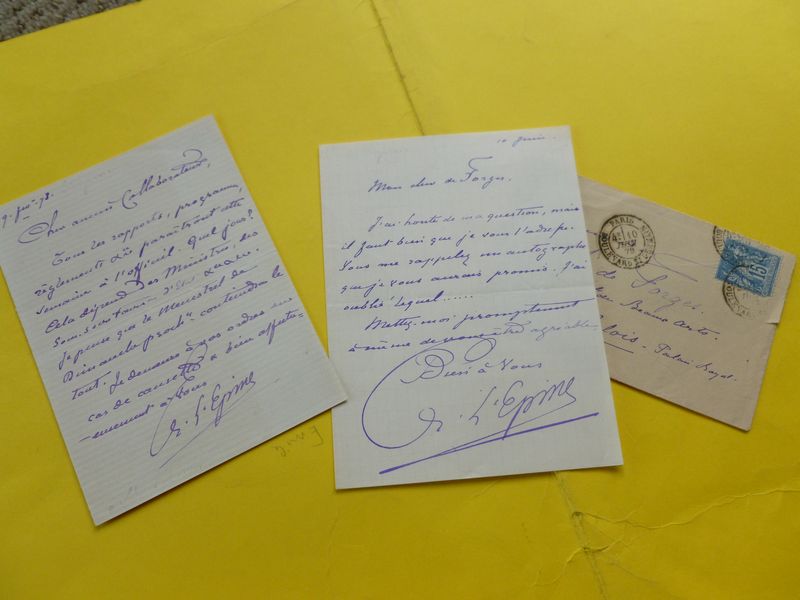 9. 78.
Cher ami et Collaborateur,
Tous les rapports, programme,
règlements &a paraîtront cette
semaine à l'officiel. Quel jour?
Cela dépend des Ministres, des
Sous-secrétaires d'État
Je pense que le Menestrel de
Dimanche proch. contiendra le
tout. Je demeure à vos ordres en
cas de & bien affectu-
eusement à vous
Ch. L'Epine
10 Juin
Mon cher de Forges,
J'ai honte de ma question, mais
il faut bien que je vous l'adresse.
Vous me rappelez un autographe
que je vous aurais promis. J'ai
oublié lequel......
Mettez-moi promptement
à même de vous être agréable.
Bien à Vous
Ch. L'Epine
PARIS
10
JUIN
15
de Forges.
Beaux arts.
Palais Royal.